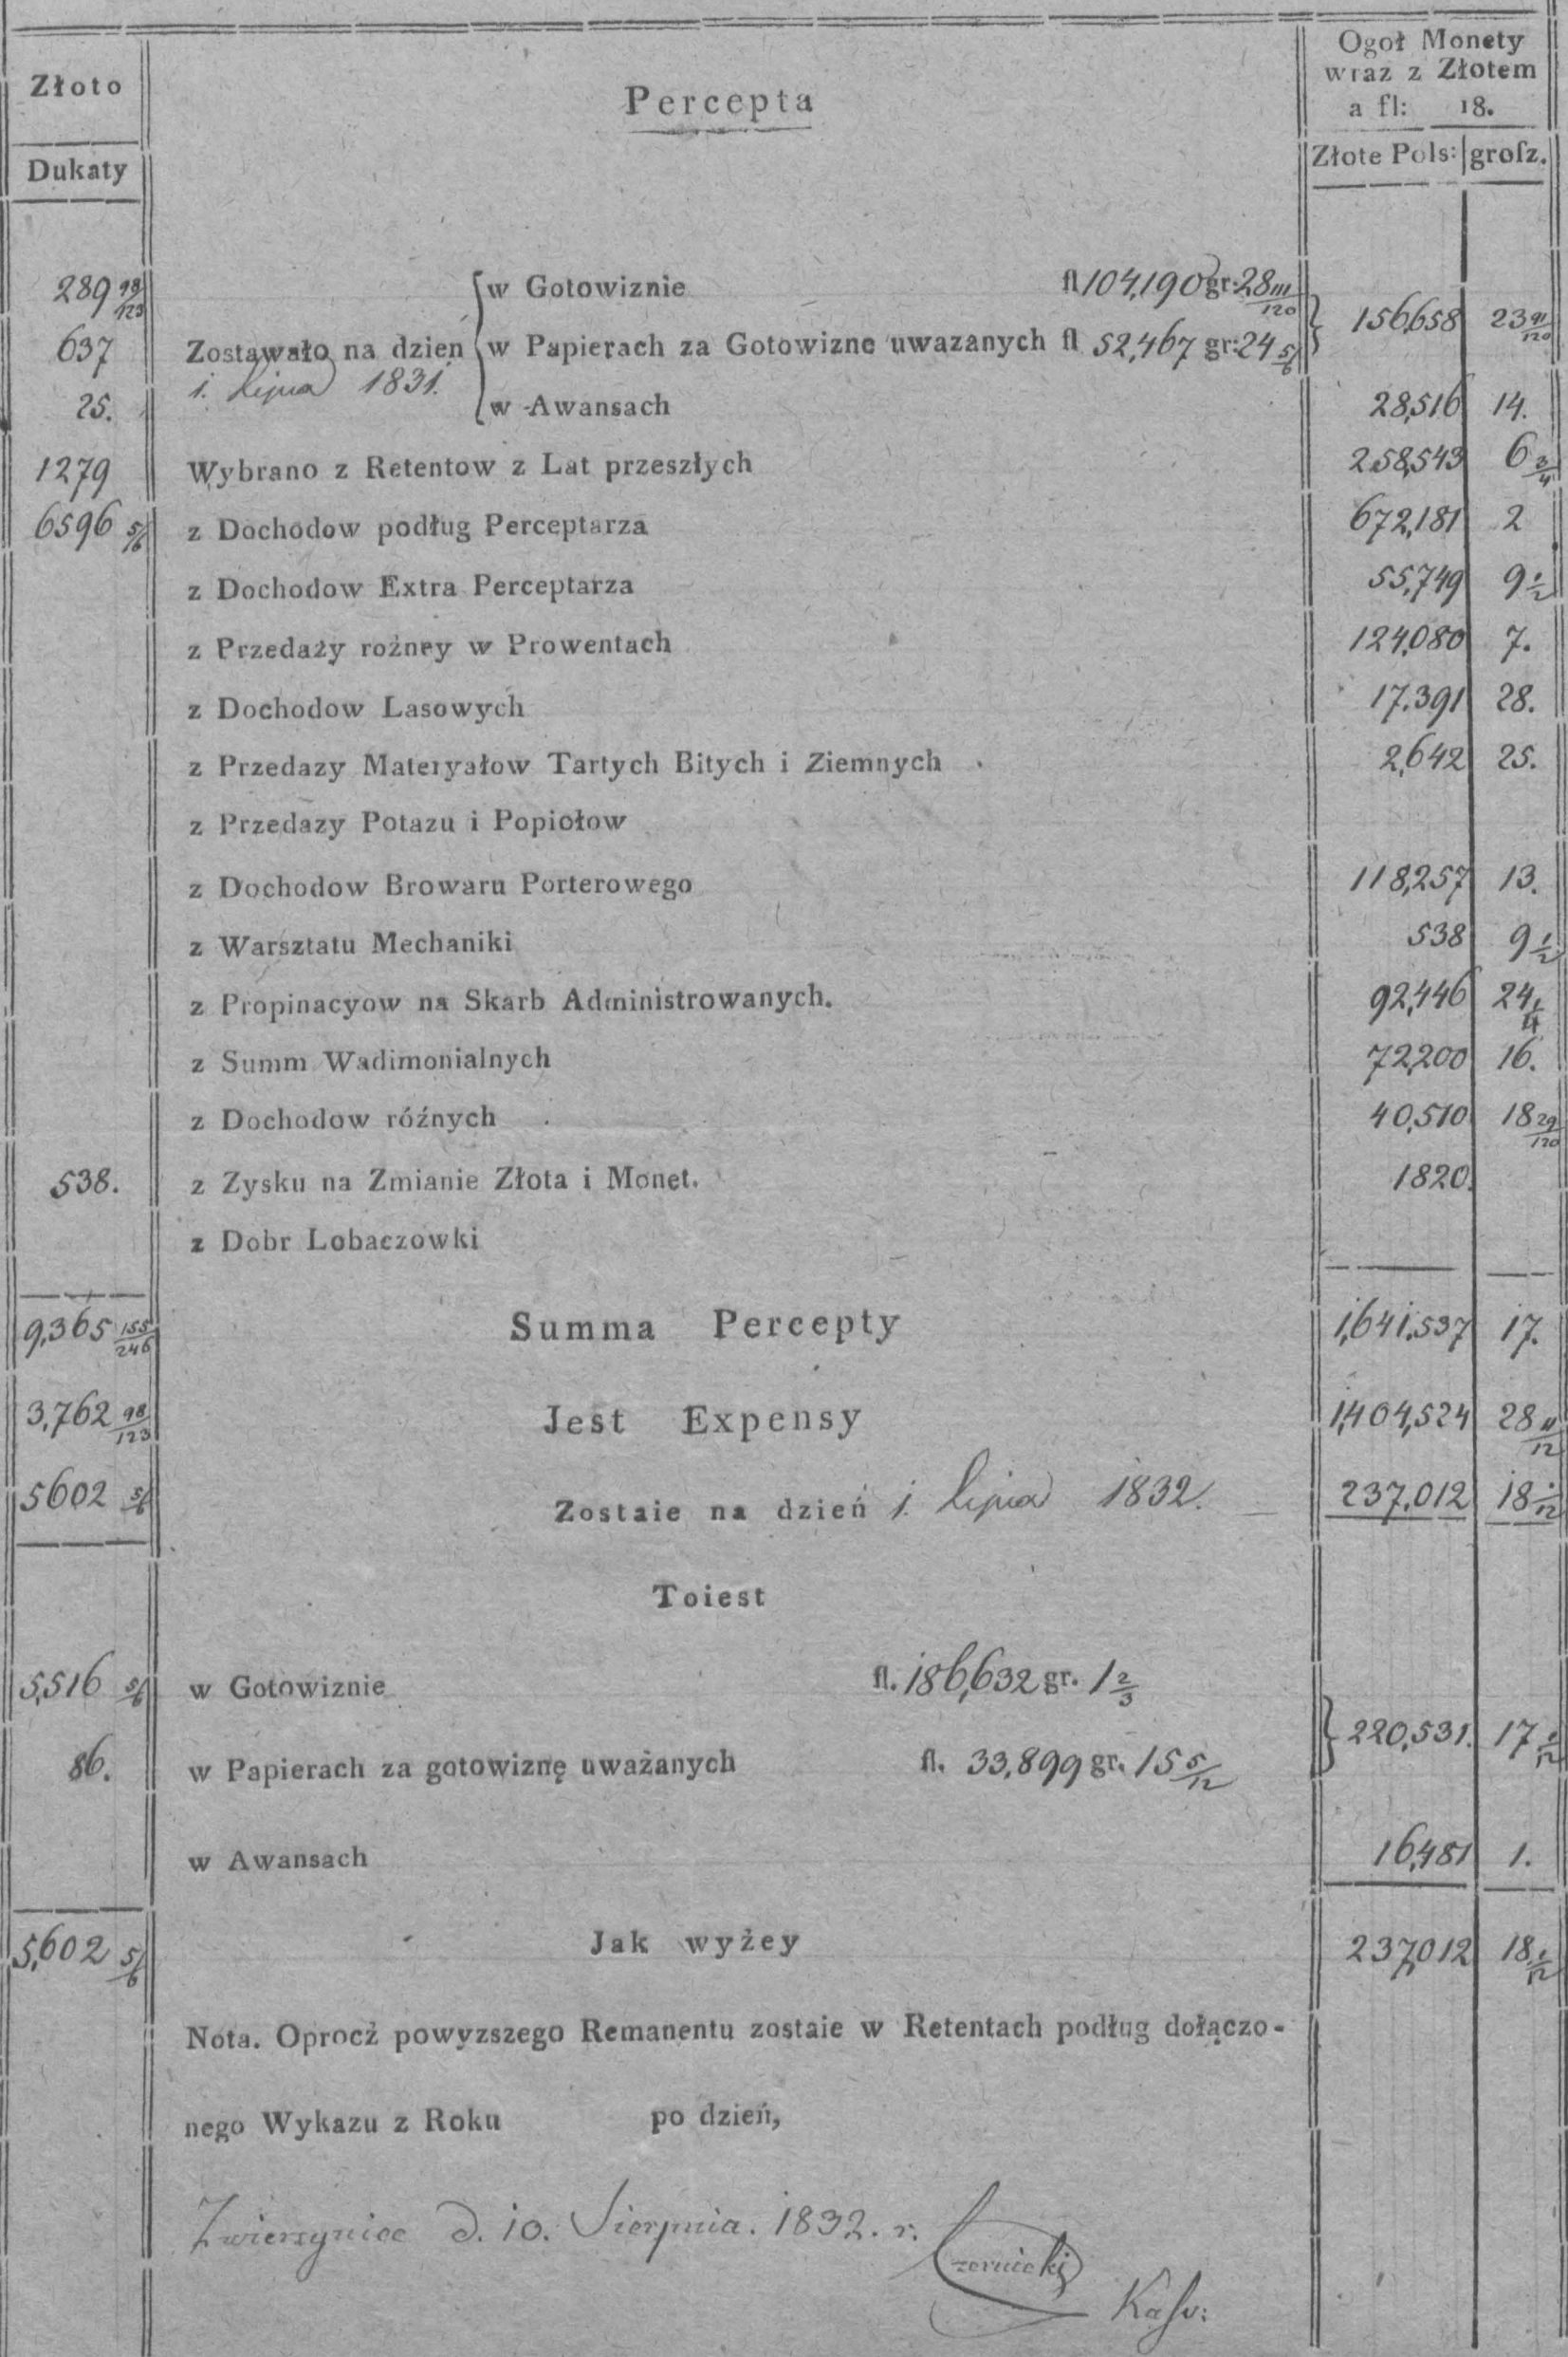 Złoto
Dukaty
Percepta
Ogoł Monety
wraz z Złotem
a fl: 18.
Złote Pols: grosz.
289 98/123 w Gotowiznie fl 104,190 gr: 28 111/120
637 Zostawało na dzien w Papierach za Gotowizne uwazanych fl 52,467 gr: 24 5/6 156,658 23 91/120
1. Lipca 1831.
25. w Awansach 28,516 14.
1279 Wybrano z Retentow z Lat przeszłych 258,543 6 3/4
6596 5/6 z Dochodow podług Perceptarza 672,181 2
z Dochodow Extra Perceptarza 55,749 9 1/2
z Przedaży rożney w Prowentach 124,080 7.
z Dochodow Lasowych 17.391 28.
z Przedazy Materyałow Tartych Bitych i Ziemnych 2,642 25.
z Przedazy Potazu i Popiołow
z Dochodow Browaru Porterowego 118,257 13.
z Warsztatu Mechaniki 538 9 1/2
z Propinacyow na Skarb Administrowanych. 92,446 24 1/4
z Summ Wadimonialnych 72,200 16.
z Dochodow różnych 40,510 18 29/120
538. z Zysku na Zmianie Złota i Monet. 1820.
z Dobr Lobaczowki
9,365 155/246 Summa Percepty 1,641,537 17.
3,762 98/123 Jest Expensy 1,404,524 28 11/12
5602 5/6 Zostaie na dzień 1. Lipca 1832. 237,012 18 1/12
Toiest
5,516 5/6 w Gotowiznie fl. 186,632 gr. 1 2/3
86. w Papierach za gotowiznę uważanych fl. 33,899 gr. 15 5/12 220,531. 17 1/12
w Awansach 16,481 1.
5,602 5/6 Jak wyżey 237,012 18 1/12
Nota. Oprocż powyzszego Remanentu zostaie w Retentach podług dołączo-
nego Wykazu z Roku po dzień,
Zwierzyniec d. 10. Sierpnia. 1832. r.
Czernicki
Kasy: